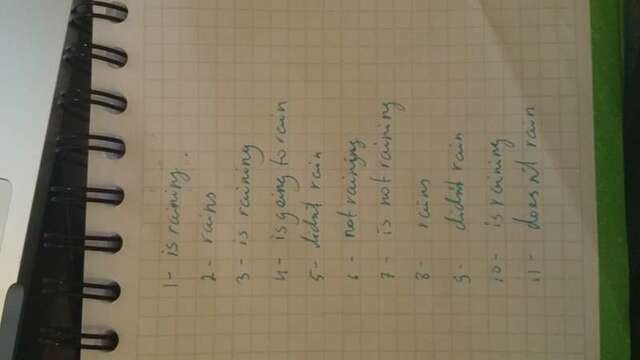 1- is raining.
2- rains
3- is raining
4- is going to rain
5- didn't rain
6- not raining
7- is not raining
8- rains
9- didn't rain
10- is raining
11- doesn't rain